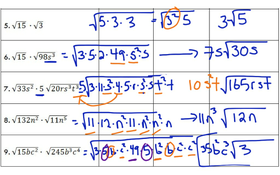 5. √15 · √3 = √5·3·3 = √3²·5 3√5
6. √15 · √98s³ = √3·5·2·49·s²·s → 7s√30s
7. √33s² · 5√20rs³t³ = 5√3·11·s²·4·5·r·s²·s·t²·t 10s²t√165rst
8. √132n² · √11n⁵ = √11·12·n²·11·n²·n²·n 11n³√12n
9. √15bc² · √245b³c⁴ = √3·5·b·c²·49·5·b²·b·c²·c² 35b²c³√3